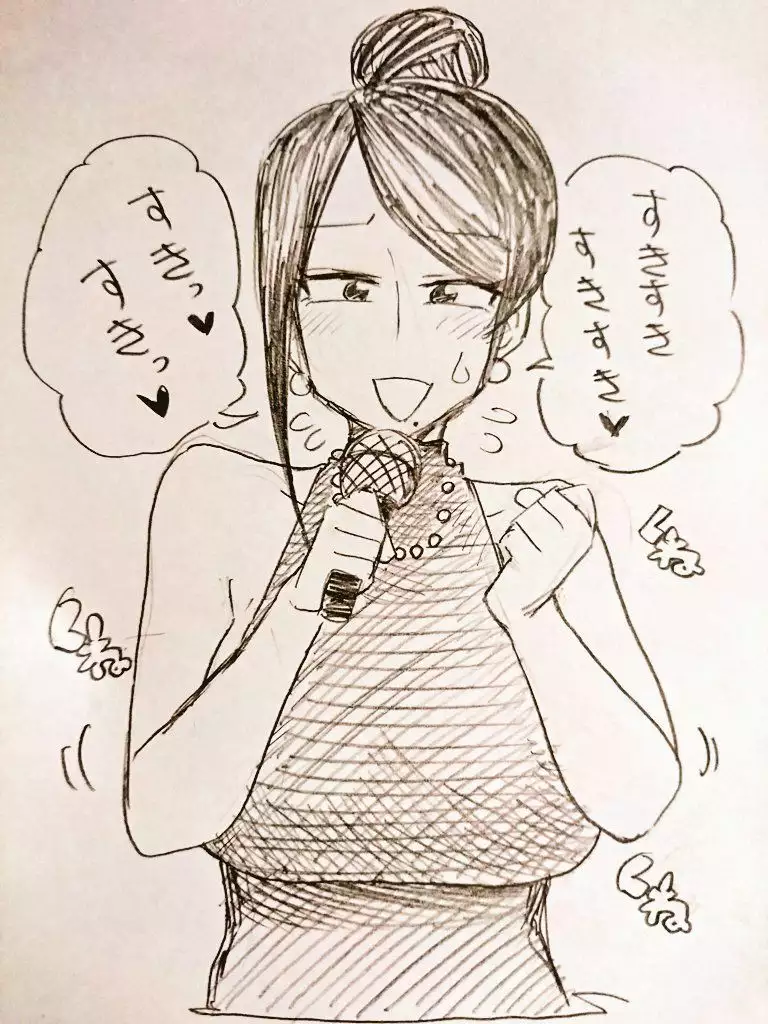 すきすき
すきすき♥
すきっ♥
すきっ♥
くね
くね
くね